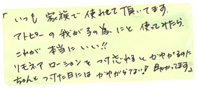 「いつも家族で使わせて頂いてます。
アトピーの我が子の為にと使ってみたら
これが本当にいい!!
リモネア ローションをつけ忘れるとかゆがるのに
ちゃんとつけた日にはかゆがらない! 助かってます」